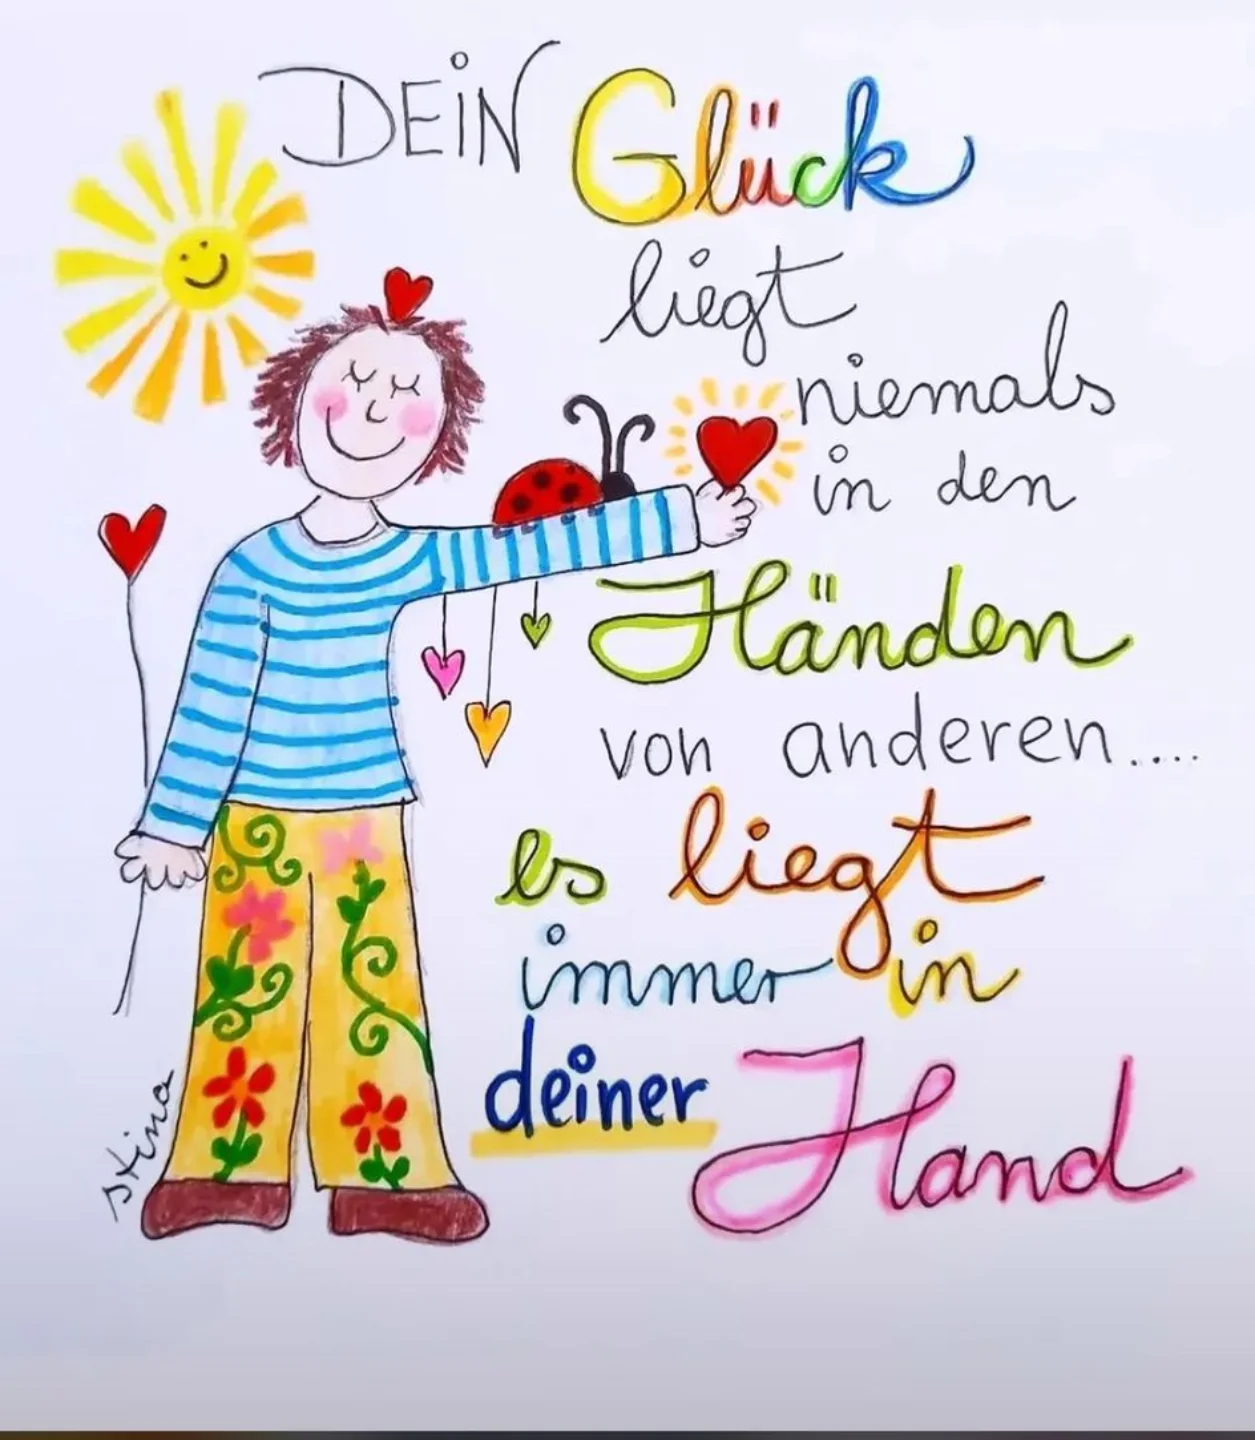 DEiN Glück
liegt
niemals
in den
Händen
von anderen....
es liegt
immer in
deiner Hand
stina